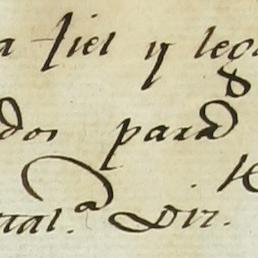 a fiel y leg
dos para
ral.ª Dir.